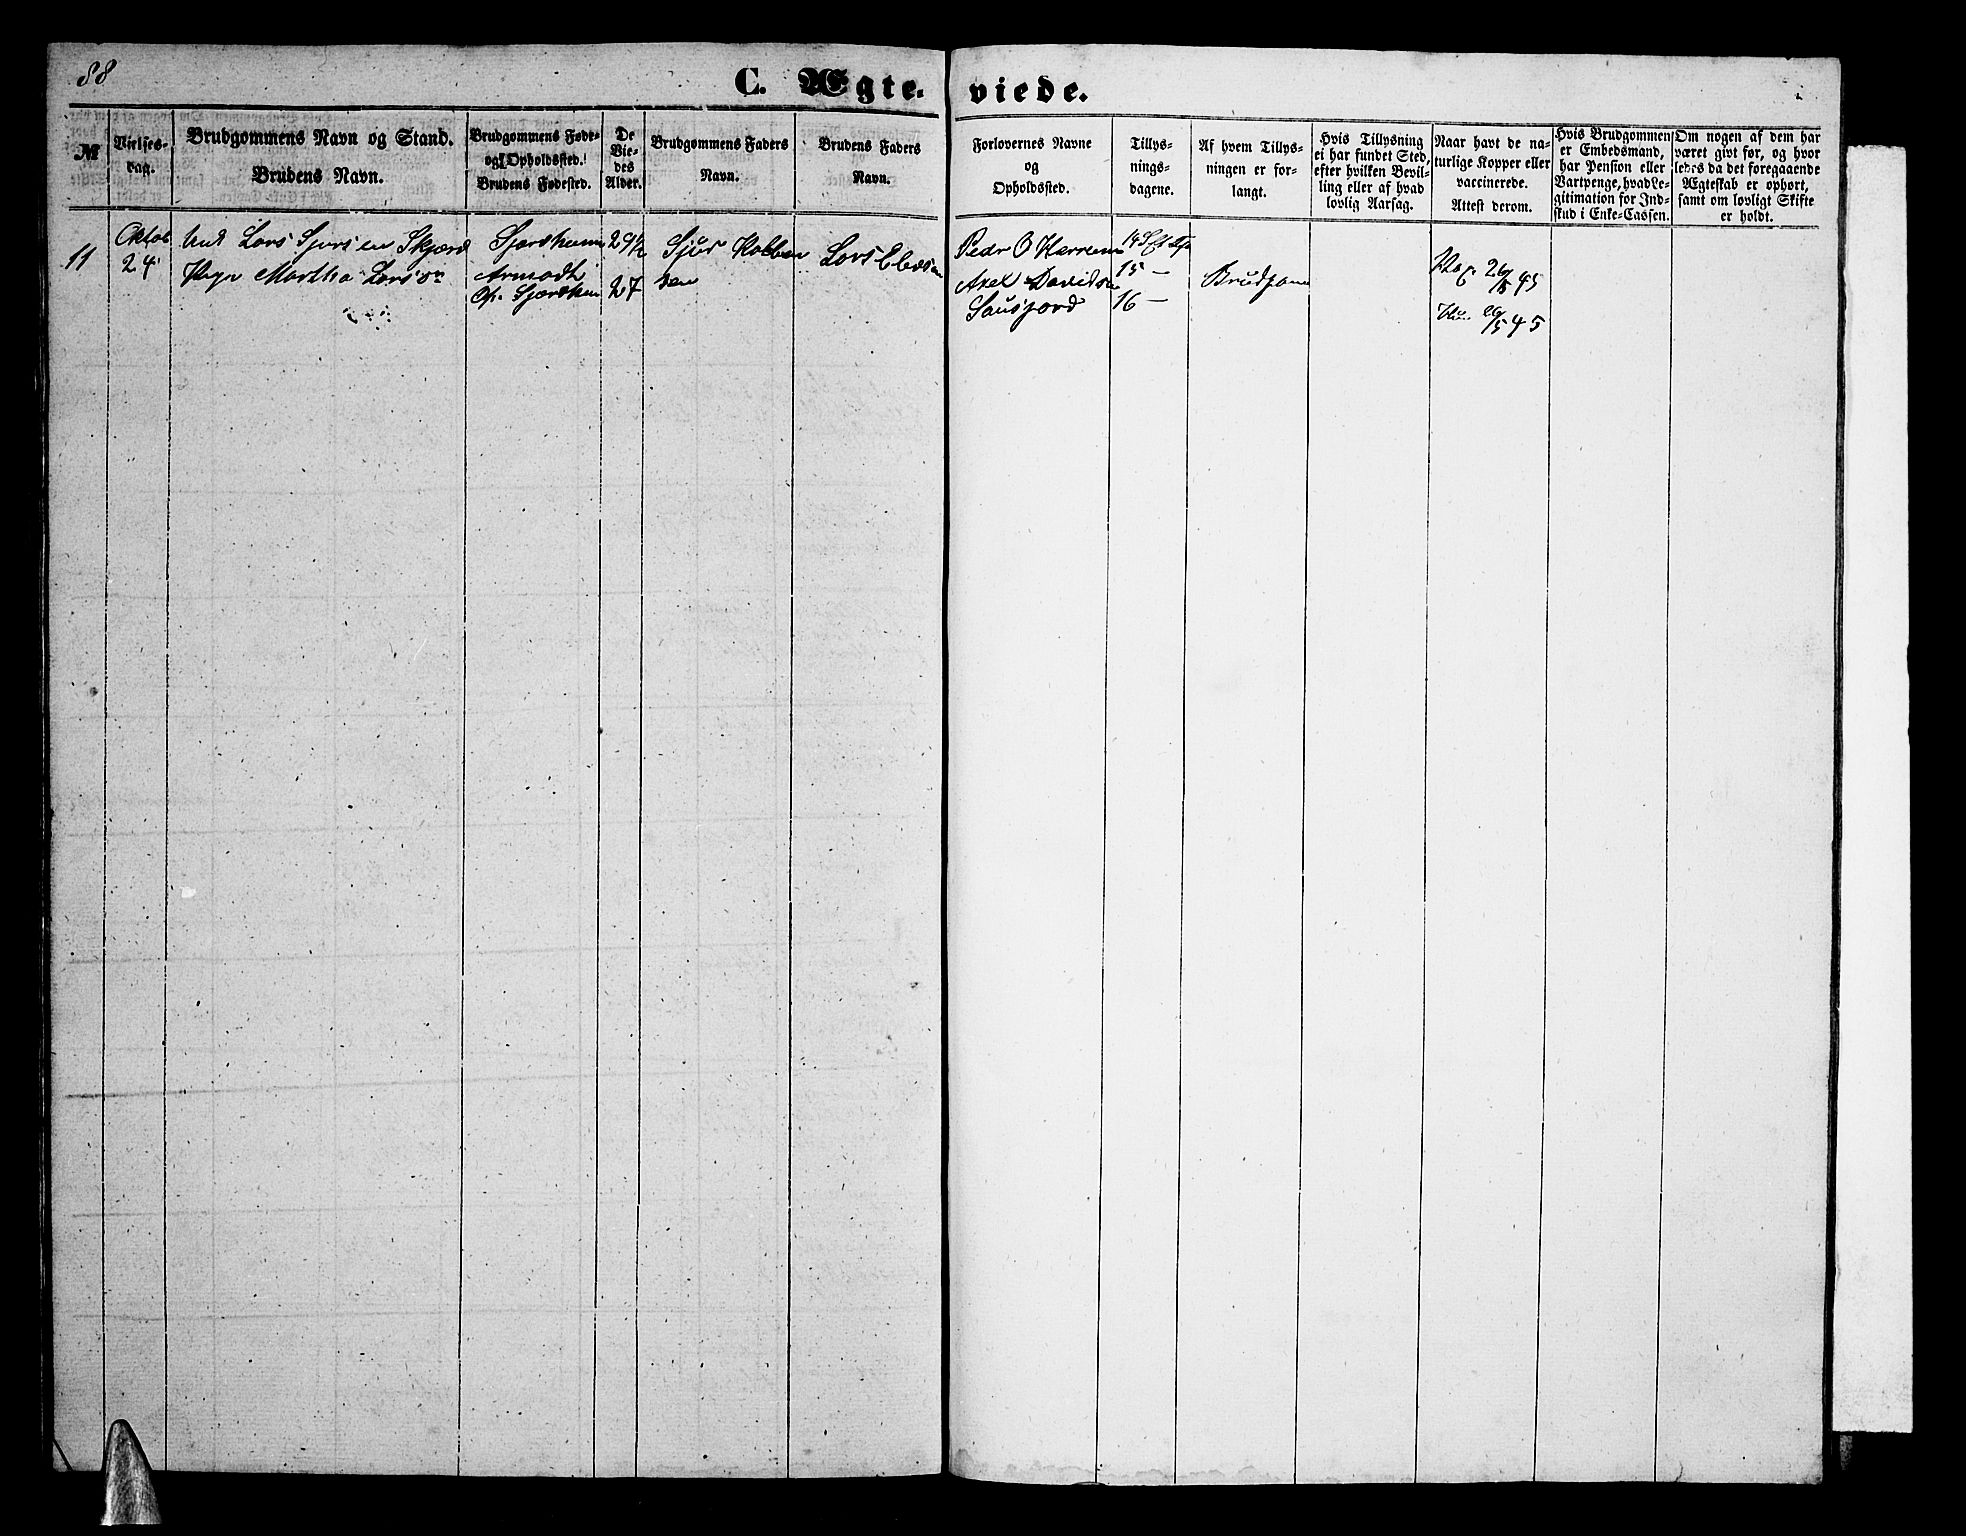 88
C. Ægte- viede.
№
Vielses-
dag.
Brudgommens Navn og Stand.
Brudens Navn.
Brudgommens Føde-
og Opholdssted.
Brudens Fødested.
De
Vie-
des
Alder.
Brudgommens Faders
Navn.
Brudens Faders
Navn.
Forlovernes Navne
og
Opholdssted.
Tillys-
nings-
dagene.
Af hvem Tillys-
ningen er for-
langt.
Hvis Tillysning
ei har fundet Sted,
efter hvilken Bevil-
ling eller af hvad
lovlig Aarsag.
Naar havt de na-
turlige Kopper eller
vaccinerede.
Attest derom.
Hvis Brudgommen
er Embedsmand,
har Pension eller
Vartpenge, hvad Le-
gitimation for Ind-
skud i Enke-Cassen.
Om nogen af dem har
været givt før, og hvor
ledes da det foregaaende
Ægteskab er ophørt,
samt om lovligt Skifte
er holdt.
11
24
Lars Sjursen
Martha Lars
27
Sjur
sen
Lars
Peder O
Axel Davidsen
15 —
16 —
26/5 45